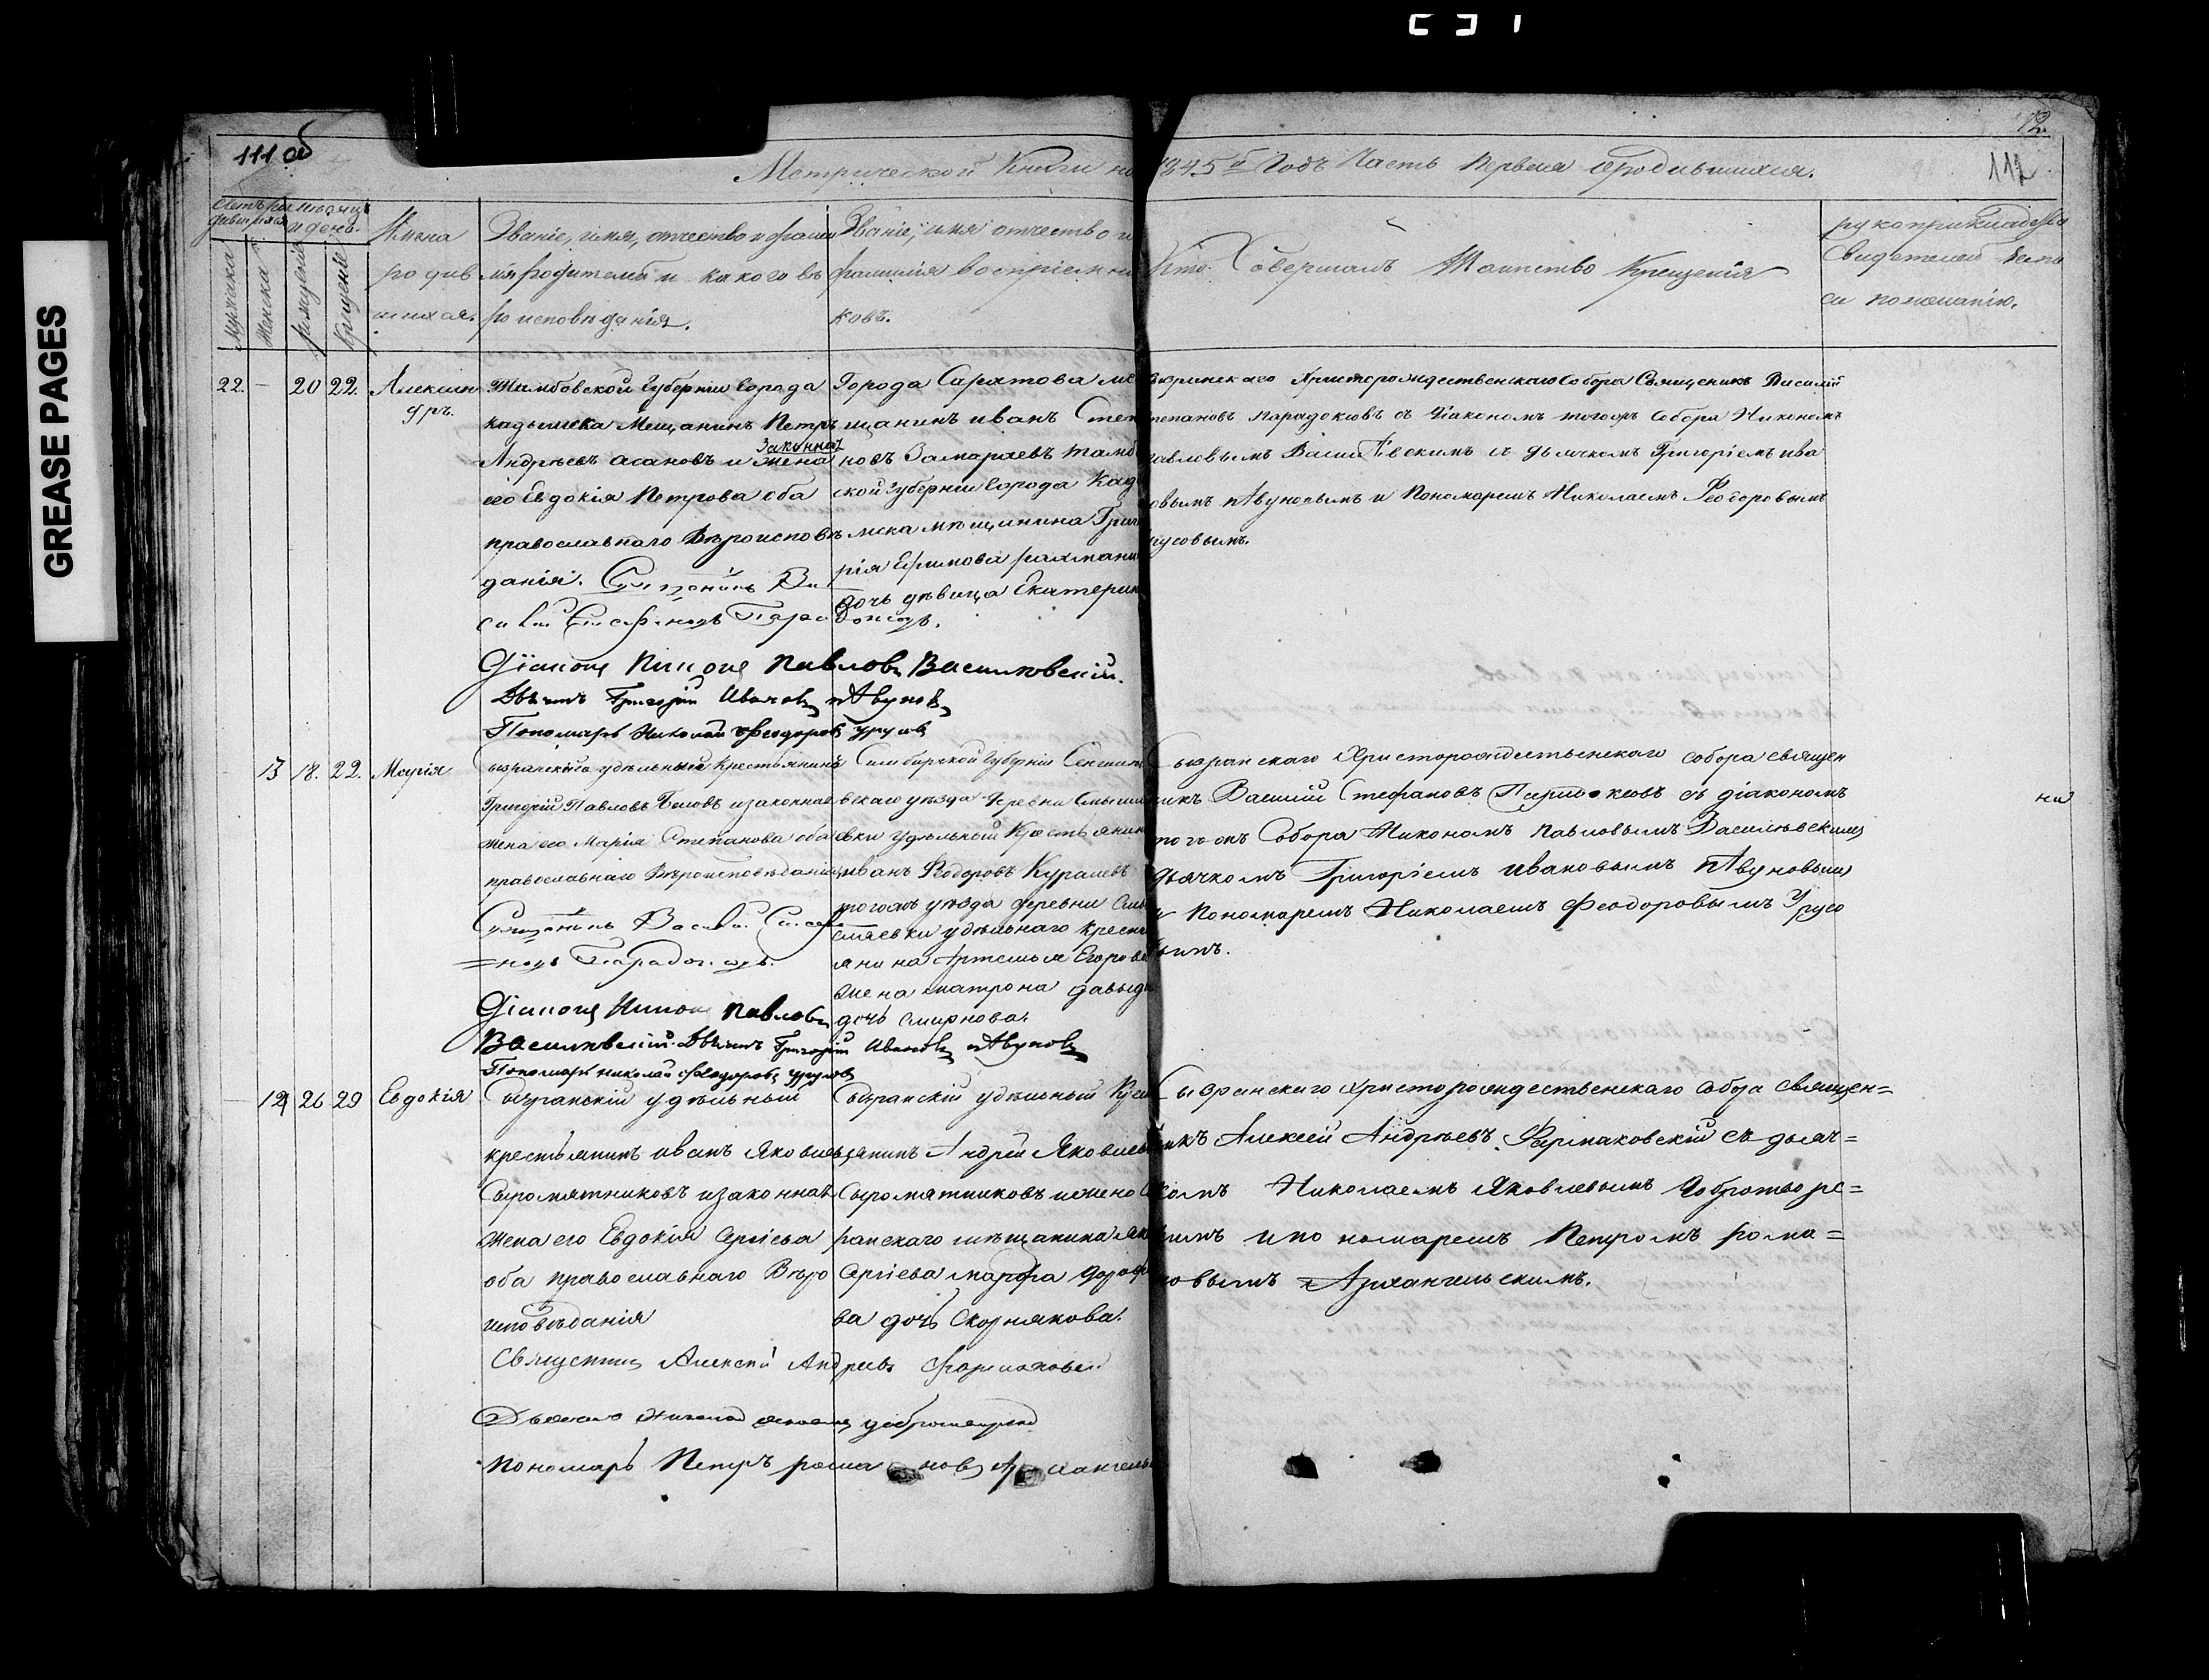 GREASE PAGES
111 об
12
112
Метрической Книги на 1845й Годъ Часть Первая о родившихся.
Мужеска
Женска
рожденія
крещенія
Имена
родив
шихся.
Званіе, имя, отчество и фами
лія родителей и какого вѣ
роисповѣданія.
Званіе, имя отчество и
фамилія воспріемни
ковъ.
Кто Совершалъ Таинство Крещенія
рукоприкладство
Свидетелей
по желанію.
22. — 20 22. Алексан
дръ.
Тамбовской Губерніи Города
Кадомска Мещанинъ Петръ
Андреевъ Асановъ и законная жена
его Евдокія Петрова оба
православнаго Вѣроисповѣ
данія.
Города Саратова ме
щанинъ иванъ Степ
новъ Замараевъ тамб
ской Губерніи Города Кад
мска мѣщанина Григ
рія Ефимова
дочь дѣвица Екатерин
Сызранскаго Христорождественскаго Собора Священикъ Василій
Степановъ Парадоксовъ съ Діакономъ тогожъ Собора Никономъ
Павловымъ Василевскимъ съ дьячкомъ Григоріемъ ива
новымъ пѣвуновымъ и Пономаремъ Николаемъ Феодоровымъ
Урусовымъ.
Священникъ Ва
силій Стефановъ Парадоксовъ.
Діаконъ Никонъ Павловъ Василевскій.
Дьячекъ Григорій Ивановъ пѣвуновъ
Пономарь Николай Феодоровъ Урусовъ
13 18. 22. Марія
Сызранскаго удѣльный Крестьянинъ
Григорій Павловъ Бѣловъ и законная
жена его Марія Степанова оба
православнаго Вѣроисповѣданія
Симбирской Губерніи Сенгиле
вскаго уѣзда деревни
удѣльный Крестьянин
иванъ Ѳедоровъ Курашевъ
тогожъ уѣзда деревни
удѣльнаго крестъ
янина Артемья Егорова
жена матрона давыдо
дочь Смирнова.
Сызранскаго Христорождественскаго собора священ
никъ Василій Стефановъ Парадоксовъ съ діакономъ
тогожъ Собора Никономъ Павловымъ Василевскимъ
дьячкомъ Григоріемъ Ивановымъ пѣвуновым
и Пономаремъ Николаемъ Феодоровымъ Урусо
вымъ.
Священникъ Василій Стефа
=новъ Парадоксовъ.
Діаконъ Никонъ Павловъ
Василевскій. Дьячекъ Григорій Ивановъ пѣвуновъ
Пономарь Николай Феодоровъ Урусовъ
26 29 Евдокія
Сызранскій удѣльный
крестьянинъ иванъ Яковлевъ
Сыромятниковъ и законная
жена его Евдокія Сергіева
оба православнаго Вѣро
исповѣданія
Сызранскій удѣльный Крес
тьянинъ Андрей Яковлевъ
Сыромятниковъ и жена С
ранскаго мѣщанина
Сергіева марфа Дороф
ва дочь Скорнякова.
Сызранскаго Христорождественскаго Собора священ=
никъ Алексей Андреевъ Фармаковскій съ дьяч=
комъ Николаемъ Яковлевымъ Добротворс=
кимъ и пономаремъ Петромъ рома=
новымъ Архангельскимъ.
Священникъ Алексей Андреевъ Фармаковскій
Дьячекъ Николай Яковлевъ добротворской
Пономарь Петръ романовъ Архангельс